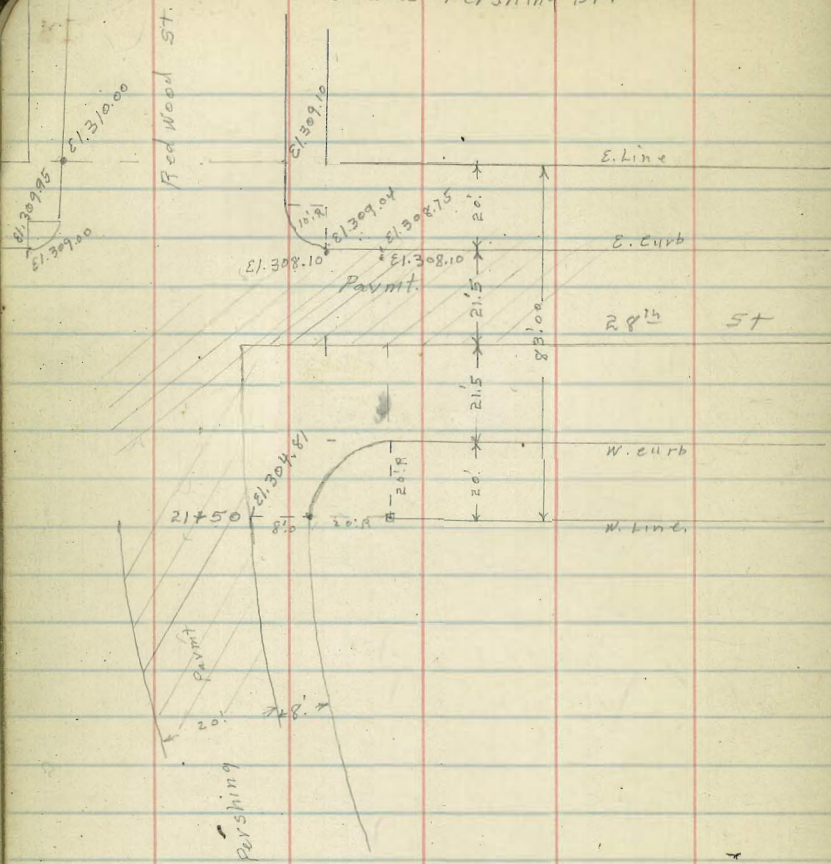 Pershing Dr.
Red Wood St.
El. 310.00
El. 309.95
El. 309.00
El. 309.10
10' R
El. 309.04
El. 308.75
El. 308.10
El. 308.10
Pavmt.
E. Line
E. Curb
20'
21.5'
83.'00
28th St
21.5'
20'
W. Curb
W. Line.
20' R
20' R
El. 304.81
21+50
8.'0
Pavmt
20'
8'
Pershing